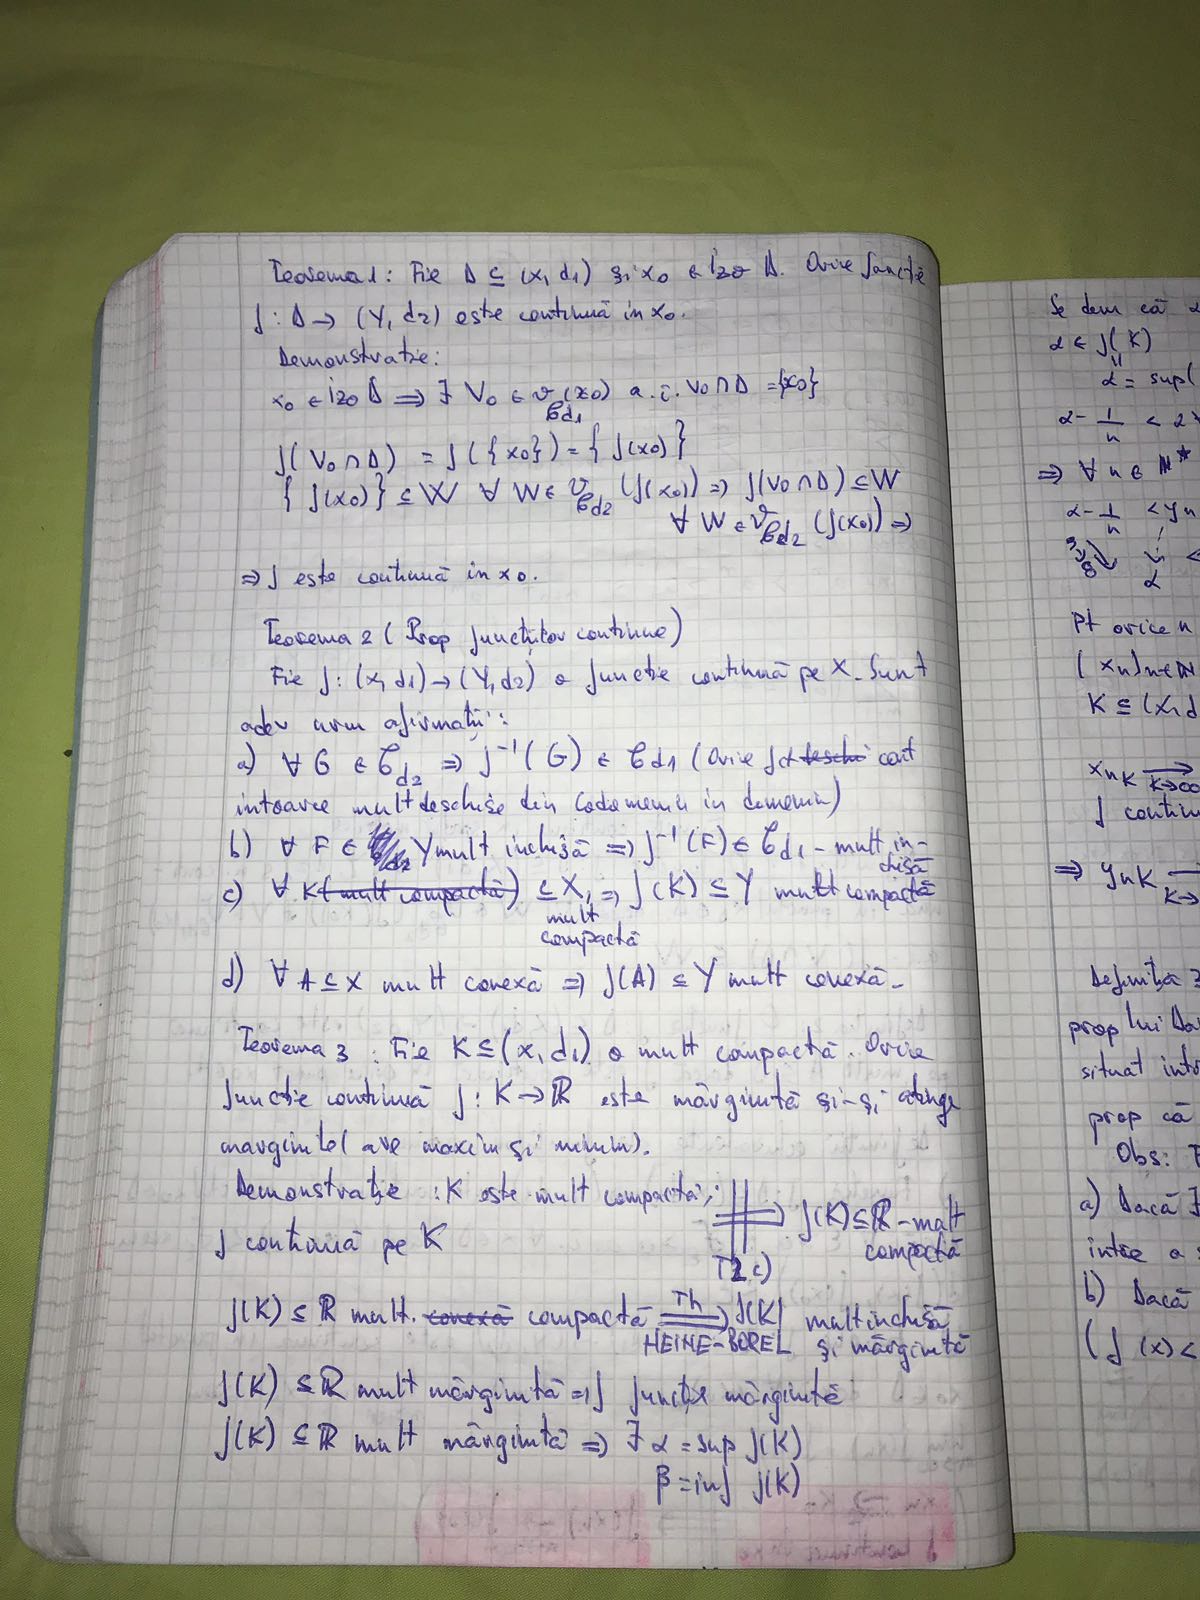 Teorema 1: Fie D ⊆ (X, d1) și x0 ∈ izo D. Orice funcție
f: D → (Y, d2) este continuă in x0.
Demonstrație:
x0 ∈ izo D ⇒ ∃ V0 ∈ 𝒱_τd1 (x0) a.i. V0 ∩ D = {x0}
f(V0 ∩ D) = f({x0}) = {f(x0)}
{f(x0)} ⊆ W ∀ W ∈ 𝒱_τd2 (f(x0)) ⇒ f(V0 ∩ D) ⊆ W
∀ W ∈ 𝒱_τd2 (f(x0)) ⇒
⇒ f este continuă in x0.
Teorema 2 (Prop funcțiilor continue)
Fie f: (X, d1) → (Y, d2) o funcție continuă pe X. Sunt
adev urm afirmații:
a) ∀ G ∈ τd2 ⇒ f⁻¹(G) ∈ τd1 (Orice fct cont
intoarce mult deschise din codomeniu in domeniu)
b) ∀ F ∈ Y mult inchisă ⇒ f⁻¹(F) ∈ τd1 - mult in-
chisă
c) ∀ K (mult compactă) ⊆ X, ⇒ f(K) ⊆ Y mult compactă
mult
compactă
d) ∀ A ⊆ X mult conexă ⇒ f(A) ⊆ Y mult conexă.
Teorema 3: Fie K ⊆ (X, d1) o mult compactă. Orice
funcție continuă f: K → ℝ este mărginită și-și atinge
marginile (are maxim și minim).
Demonstrație: K este mult compactă,
f continuă pe K
⇒ f(K) ⊆ ℝ - mult
compactă
T2 c)
f(K) ⊆ ℝ mult. conexă compactă ⇒ f(K) mult inchisă
Th
HEINE-BOREL și mărginită
f(K) ⊆ ℝ mult mărginită ⇒ f funcție mărginită
f(K) ⊆ ℝ mult mărginită ⇒ ∃ α = sup f(K)
β = inf f(K)
Se dem că α
α ∈ f(K)
α = sup(
α - 1/n < α
⇒ ∀ n ∈ ℕ*
α - 1/n < yn
α
Pt orice n
(xn)n∈ℕ
K ⊆ (X, d
xnk →
k→∞
f continu
⇒ ynk
k→
Definiția 3
prop lui Da
situat intr
prop că
Obs:
a) Dacă ∃
intre a
b) Dacă
(f(x) <